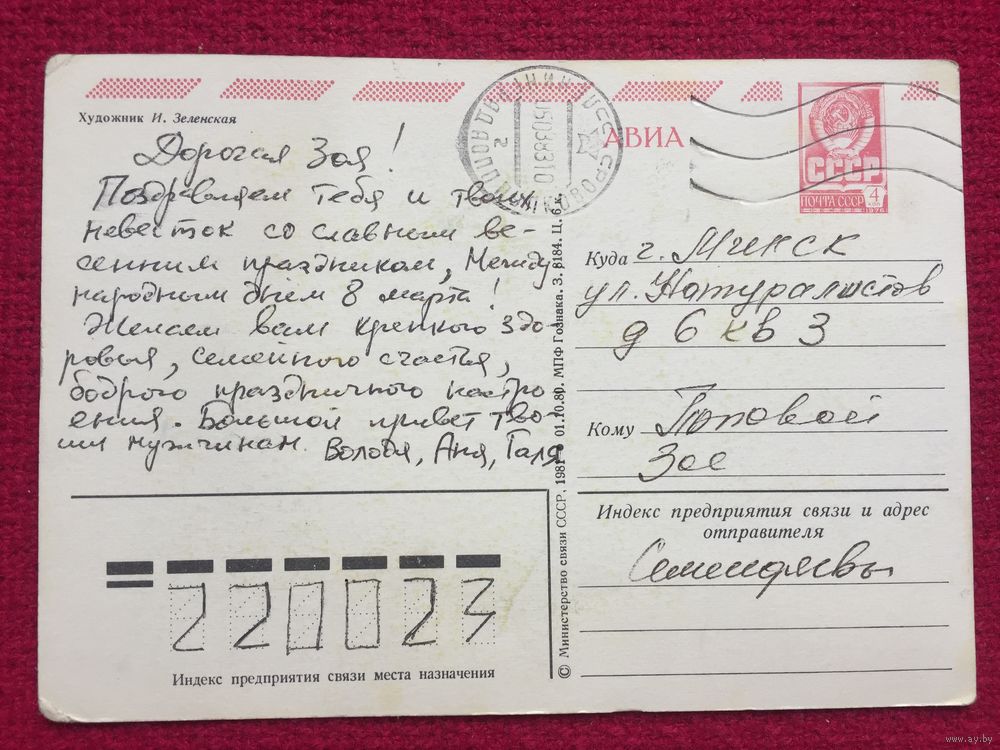 Художник И. Зеленская
Дорогая Зоя!
Поздравляем тебя и твоих
невесток со славным ве-
сенним праздником, Между
народным днём 8 марта!
Желаем вам крепкого здо-
ровья, семейного счастья,
бодрого праздничного настро
ения. Большой привет тво-
им мужчинам. Володя, Аня, Галя
АВИА
СССР
ПОЧТА СССР
4
КОП
Куда г. Минск
ул. Натуралистов
д 6 кв 3
Кому Поповой
Зое
Индекс предприятия связи и адрес
отправителя
Семендяевы
220023
Индекс предприятия связи места назначения
© Министерство связи СССР, 1981 01.10.80. МПФ Гознака. З. 8184. Ц. 6 к.
www.ay.by